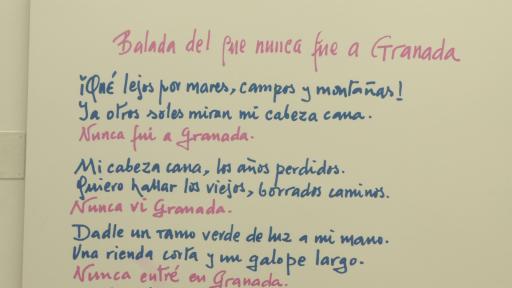 Balada del que nunca fue a Granada
¡Qué lejos por mares, campos y montañas!
Ya otros soles miran mi cabeza cana.
Nunca fui a Granada.
Mi cabeza cana, los años perdidos.
Quiero hallar los viejos, borrados caminos.
Nunca vi Granada.
Dadle un ramo verde de luz a mi mano.
Una rienda corta y un galope largo.
Nunca entré en Granada.